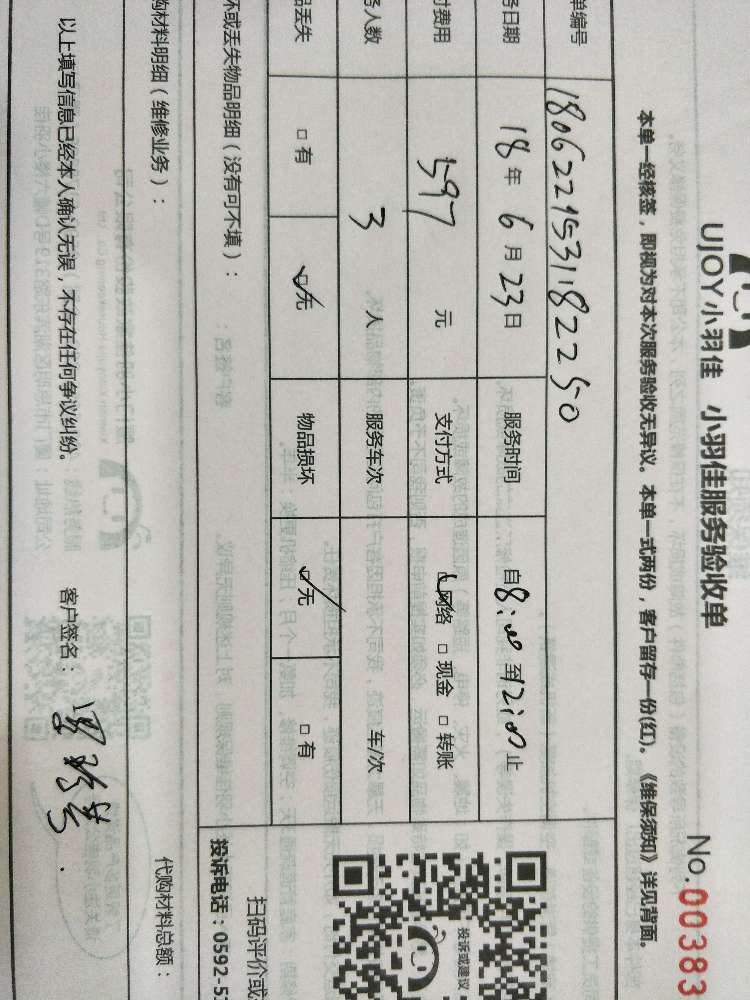 UJOY小羽佳 小羽佳服务验收单
No.00383
本单一经核签，即视为对本次服务验收无异议。本单一式两份，客户留存一份(红)。《维保须知》详见背面。
单编号 1806221531182250
务日期 18年6月23日 服务时间 自8:00至12:00止
付费用 597元 支付方式 □网络 □现金 □转账
务人数 3人 服务车次 车/次
品丢失 □有 □无 物品损坏 □无 □有
坏或丢失物品明细（没有可不填）：
扫码评价或
投诉电话：0592-5
投诉或建议
购材料明细（维修业务）： 代购材料总额：
以上填写信息已经本人确认无误，不存在任何争议纠纷。 客户签名：